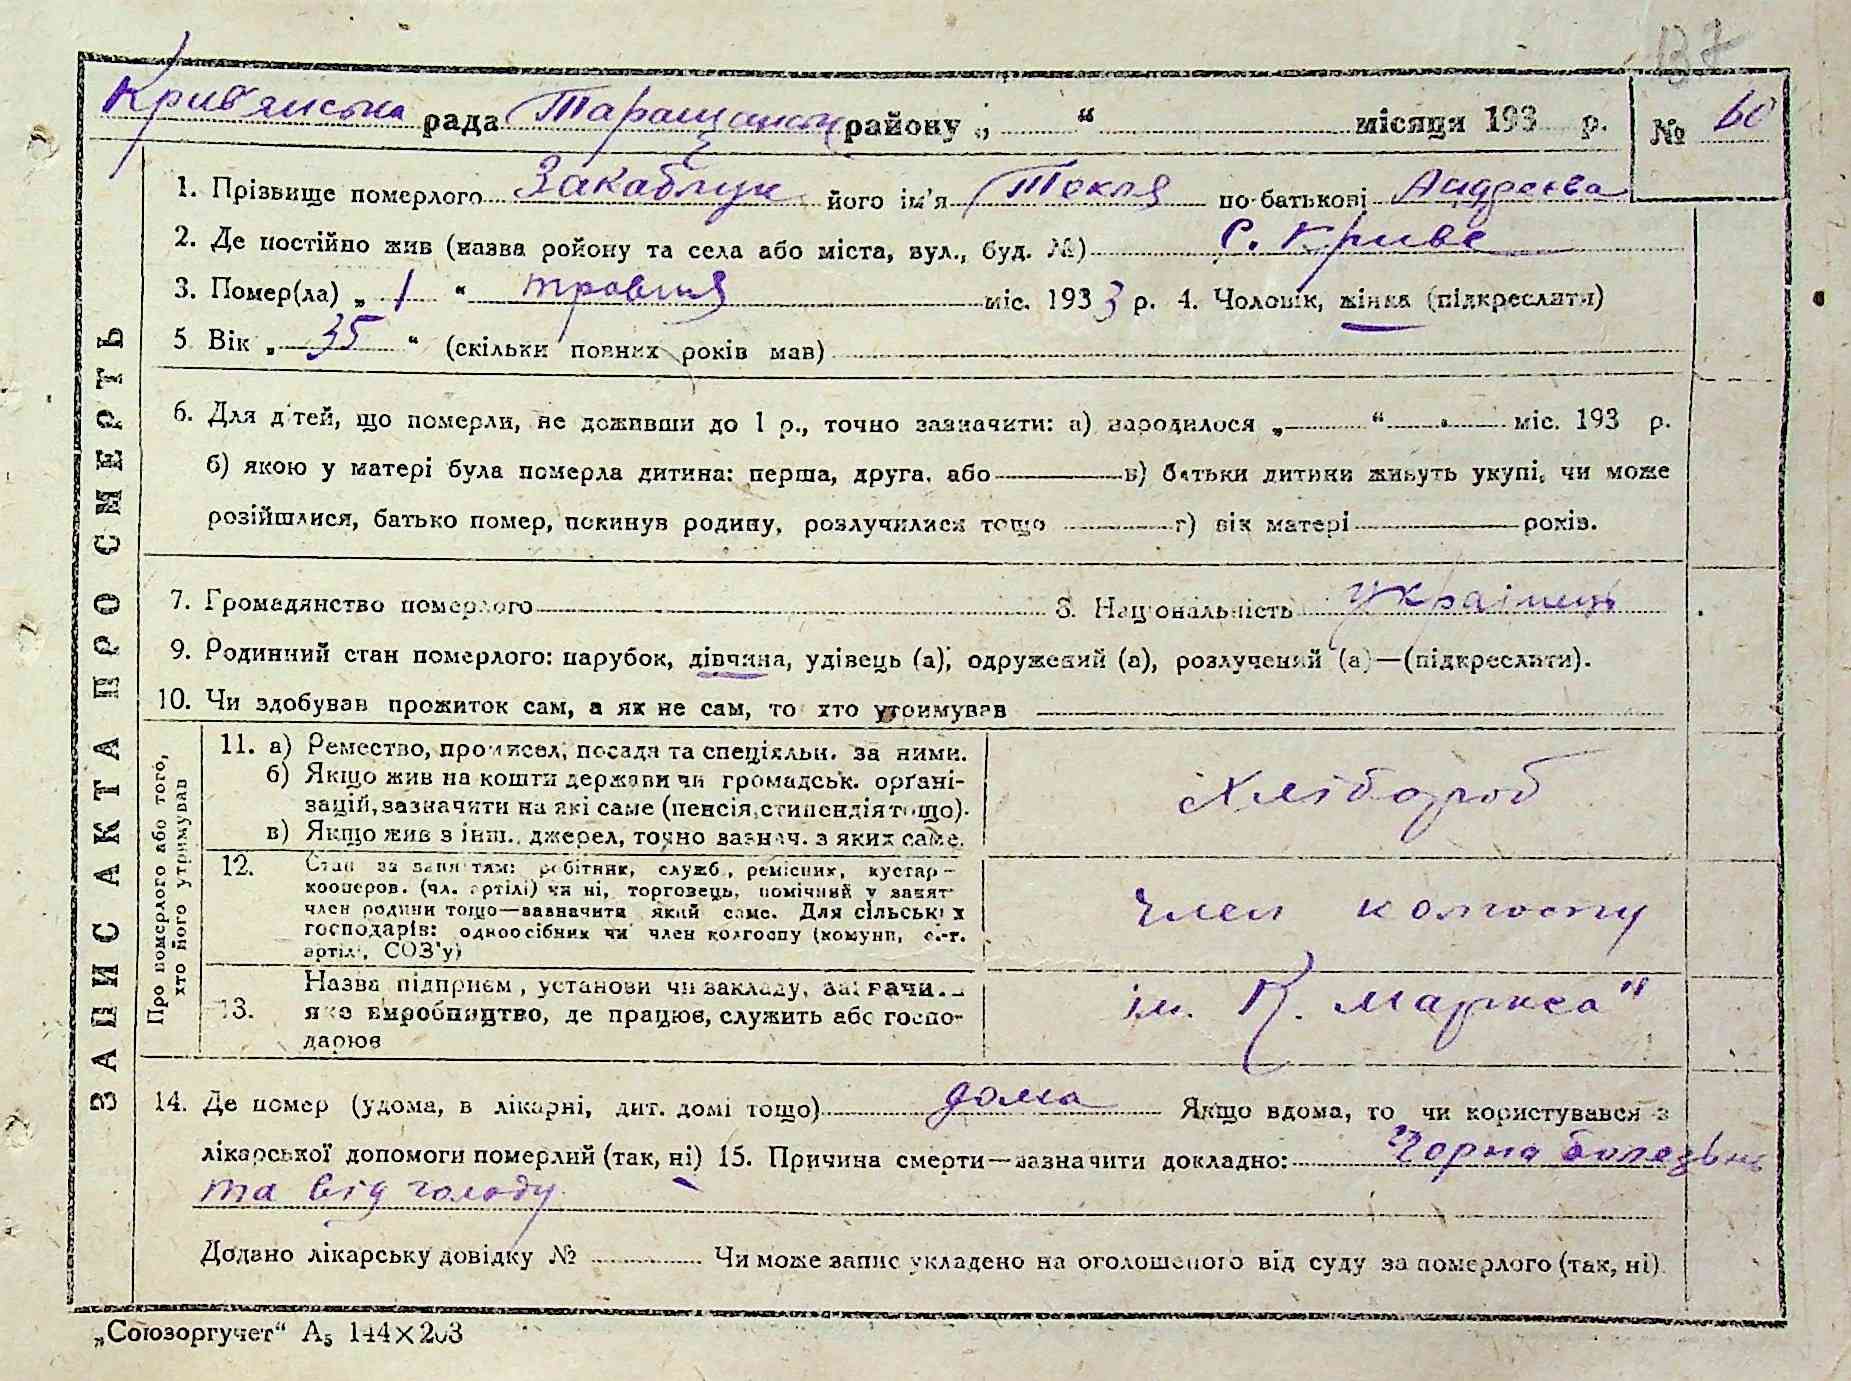 137
Крив'янська рада Таращанськ району „ “ місяця 193 р. № 60
1. Прізвище померлого Закаблук його ім'я Текля по-батькові Андреєва
2. Де постійно жив (назва ройону та села або міста, вул., буд. №) с. Криве
3. Помер(ла) „ 1 “ травня міс. 1933 р. 4. Чоловік, жінка (підкреслити)
5 Вік „ 35 “ (скільки повних років мав)
6. Для дітей, що померли, не доживши до 1 р., точно зазначити: а) народилося „ “ міс. 193 р.
б) якою у матері була померла дитина: перша, друга, або в) батьки дитини живуть укупі, чи може
розійшлися, батько помер, покинув родину, розлучилися тощо г) вік матері років.
7. Громадянство померлого 8. Національність українець
9. Родинний стан померлого: парубок, дівчина, удівець (а), одружений (а), розлучений (а)—(підкреслити).
10. Чи здобував прожиток сам, а як не сам, то хто утримував
ЗАПИС АКТА ПРО СМЕРТЬ
Про померлого або того,
хто його утримував
11. а) Ремество, промисел, посада та спеціяльн. за ними.
б) Якщо жив на кошти держави чи громадськ. орґані-
зацій, зазначити на які саме (пенсія, стипендія тощо).
в) Якщо жив з інш. джерел, точно зазнач. з яких саме.
Хлібороб
12. Стан за заняттям: робітник, служб., ремісник, кустар-
кооперов. (чл. артілі) чи ні, торговець, помічний у занят
член родини тощо—зазначити який саме. Для сільських
господарів: одноосібник чи член колгоспу (комуни, с.-г.
артілі, СОЗ'у)
член колгоспу
13. Назва підприєм., установи чи закладу, зазначи..
яке виробництво, де працює, служить або госпо-
дарює
ім. К. Маркса"
14. Де помер (удома, в лікарні, дит. домі тощо) дома Якщо вдома, то чи користувався з
лікарської допомоги померлий (так, ні) 15. Причина смерти—зазначити докладно: Чорна болезьнь
та від голоду
Додано лікарську довідку № Чи може запис укладено на оголошеного від суду за померлого (так, ні).
„Союзоргучет“ А₅ 144×203